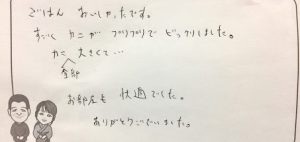 ごはん おいしかったです。
すごく カニが プリプリで びっくりしました。
カニ 大きくて…
全部
お部屋も 快適でした。
ありがとうございました。